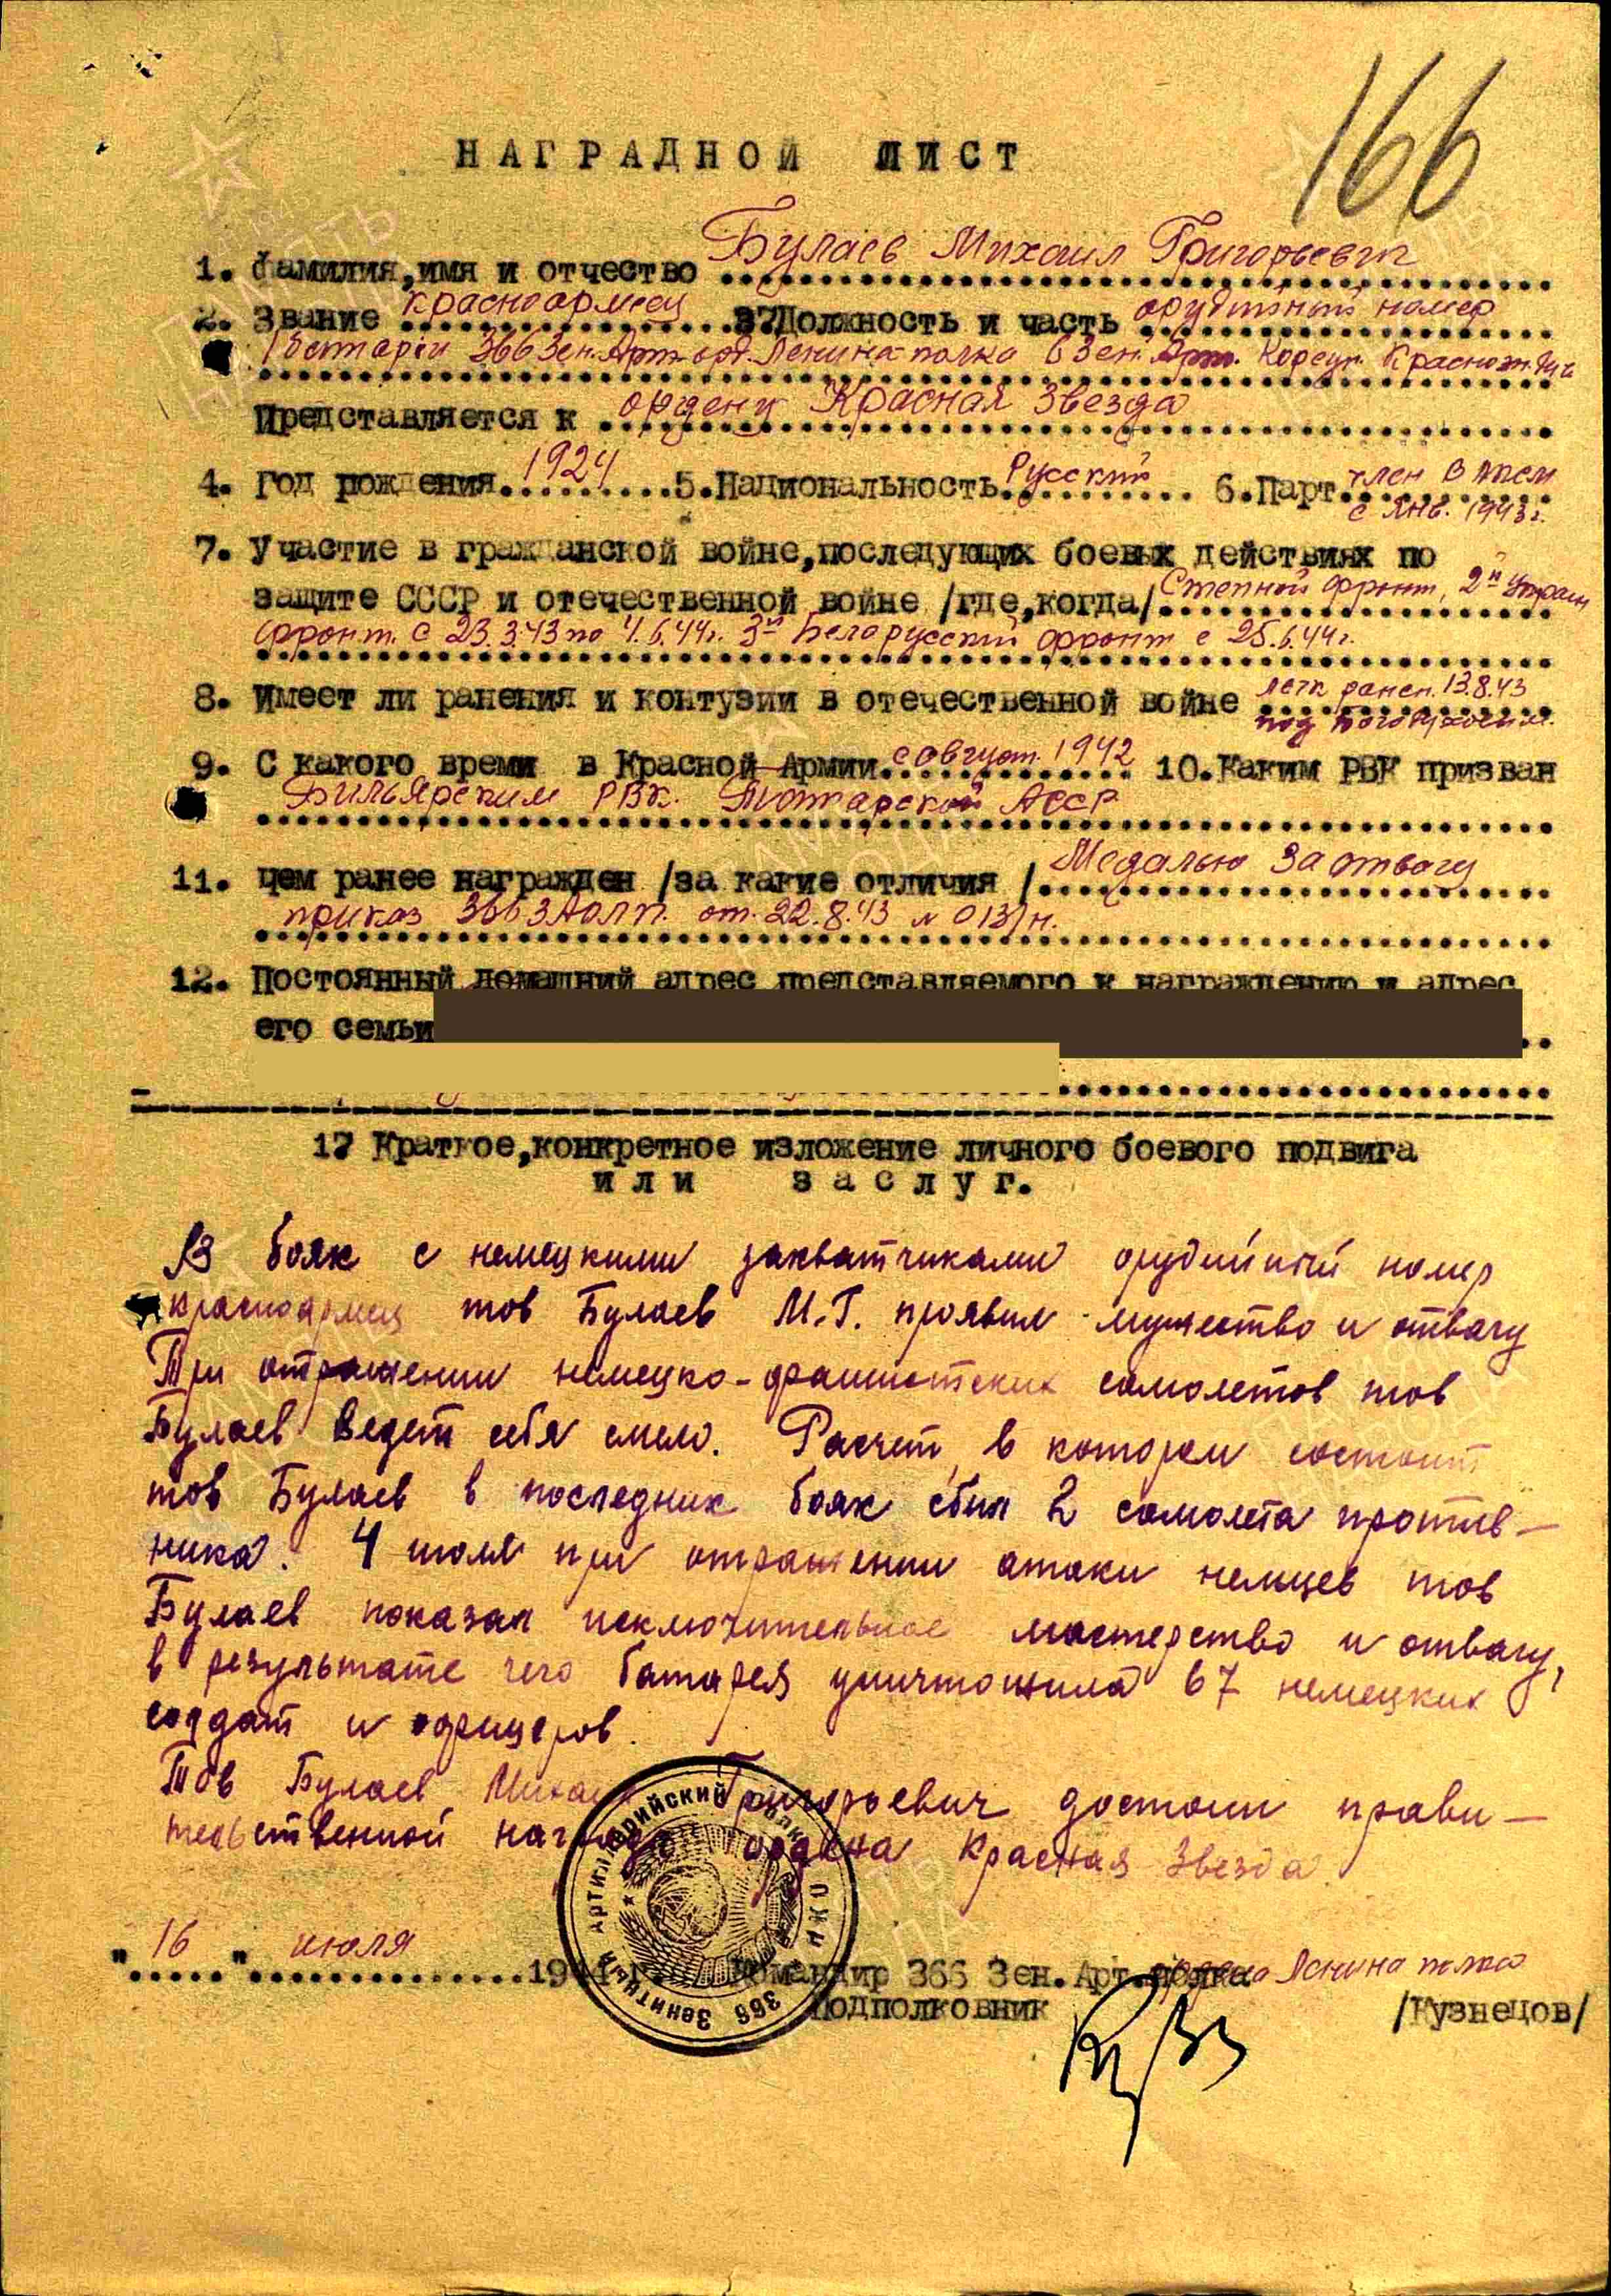 166
НАГРАДНОЙ ЛИСТ
1. Фамилия,имя и отчество Булаев Михаил Григорьевич
2. Звание красноармеец 3?Должность и часть орудийный номер
1 батареи 366 Зен. Арт. орд. Ленина полка 6 Зен. Арт.
Представляется к ордену Красная Звезда
4. Год рождения 1924 5.Национальность Русский 6.Парт. член ВЛКСМ
с Янв. 1943г.
7. Участие в гражданской войне,последующих боевых действиях по
защите СССР и отечественной войне /где,когда/ Степной фронт, 2й Украин
фронт. с 23.3.43 по 4.6.44г. 3й Белорусский фронт с 25.6.44г.
8. Имеет ли ранения и контузии в отечественной войне легк ранен. 13.8.43
под Богодуховым.
9. С какого времи в Красной Армии. с август. 1942 10.Каким РВК призван
Бильярским РВК. Татарской АССР
11. чем ранее награжден /за какие отличия / Медалью За отвагу
приказ 366 ЗАОЛП. от. 22.8.43 № 013/н.
12. Постоянный домашний адрес представляемого к награждению и адрес
его семьи
1? Краткое,конкретное изложение личного боевого подвига
или заслуг.
В боях с немецкими захватчиками орудийный номер
красноармеец тов Булаев М.Г. проявил мужество и отвагу
При отражении немецко-фашистских самолетов тов
Булаев ведет себя смело. Расчет, в котором состоит
тов Булаев в последних боях сбил 2 самолета против-
ника. 4 июля при отражении атаки немцев тов
Булаев показал исключительное мастерство и отвагу,
в результате чего батарея уничтожила 67 немецких
солдат и офицеров.
Тов Булаев Михаил Григорьевич достоин прави-
тельственной награды ордена Красная Звезда
"16" июля 1944 г. Командир 366 Зен.Арт.полка ордена Ленина полка
Подполковник /Кузнецов/
366 Зенитный Артиллерийский полк